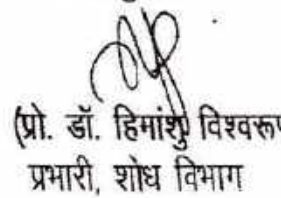 (प्रो. डॉ. हिमांशु विश्वरूप
प्रभारी, शोध विभाग